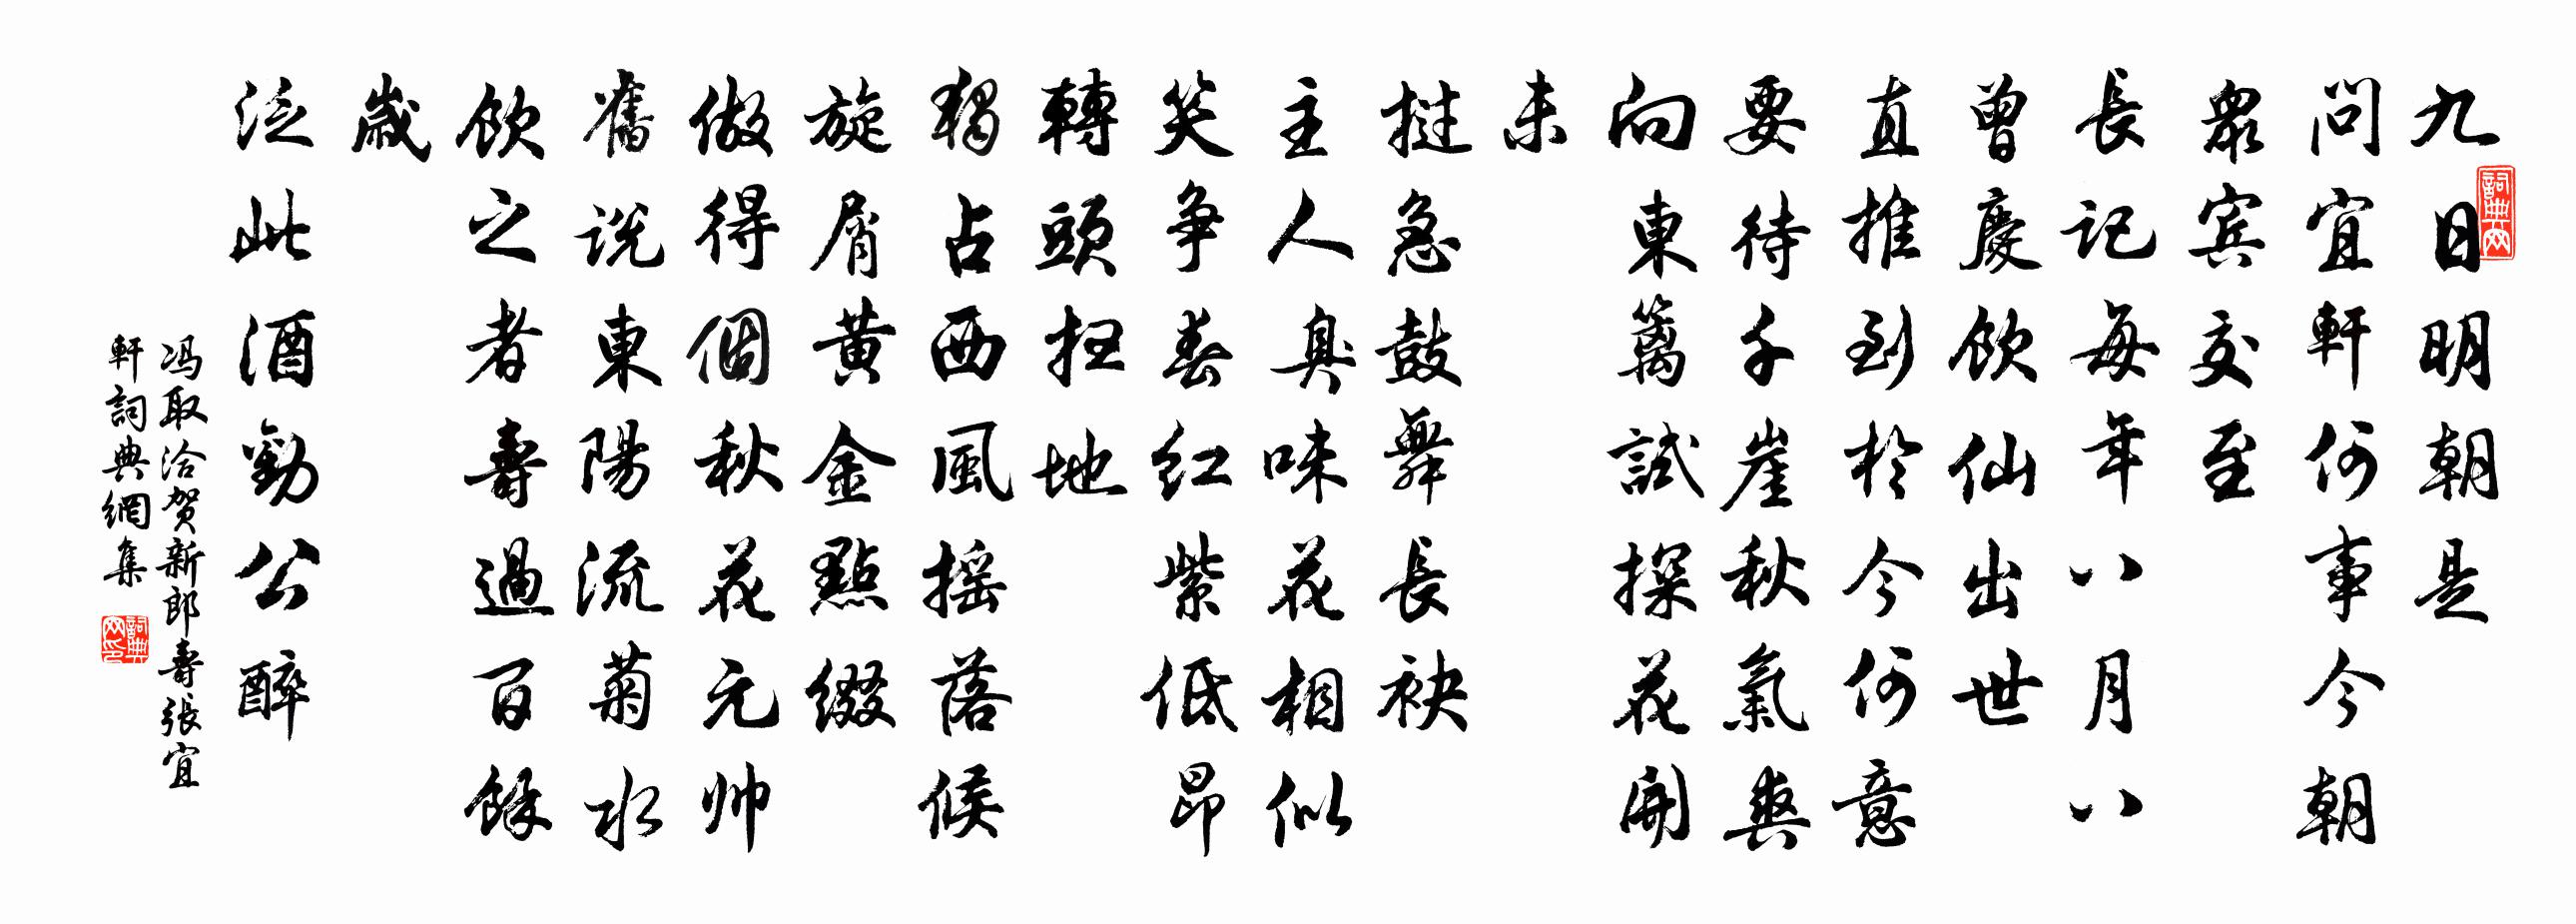 九日明朝是
問宜軒何事今朝
衆宾交至
長記每年八月八
曾慶飲仙出世
直推到於今何意
要待千崖秋氣爽
向東篱試探花開
未
挝急鼓舞長袂
主人臭味花相似
笑争春红紫低昂
轉頭扫地
獨占西風摇落候
旋屑黄金點綴
做得個秋花元帅
舊説東陽流菊水
飲之者壽過百餘
歲
泛此酒勸公醉
冯取洽贺新郎壽張宜
軒詞典網集
詞典网
詞典网印